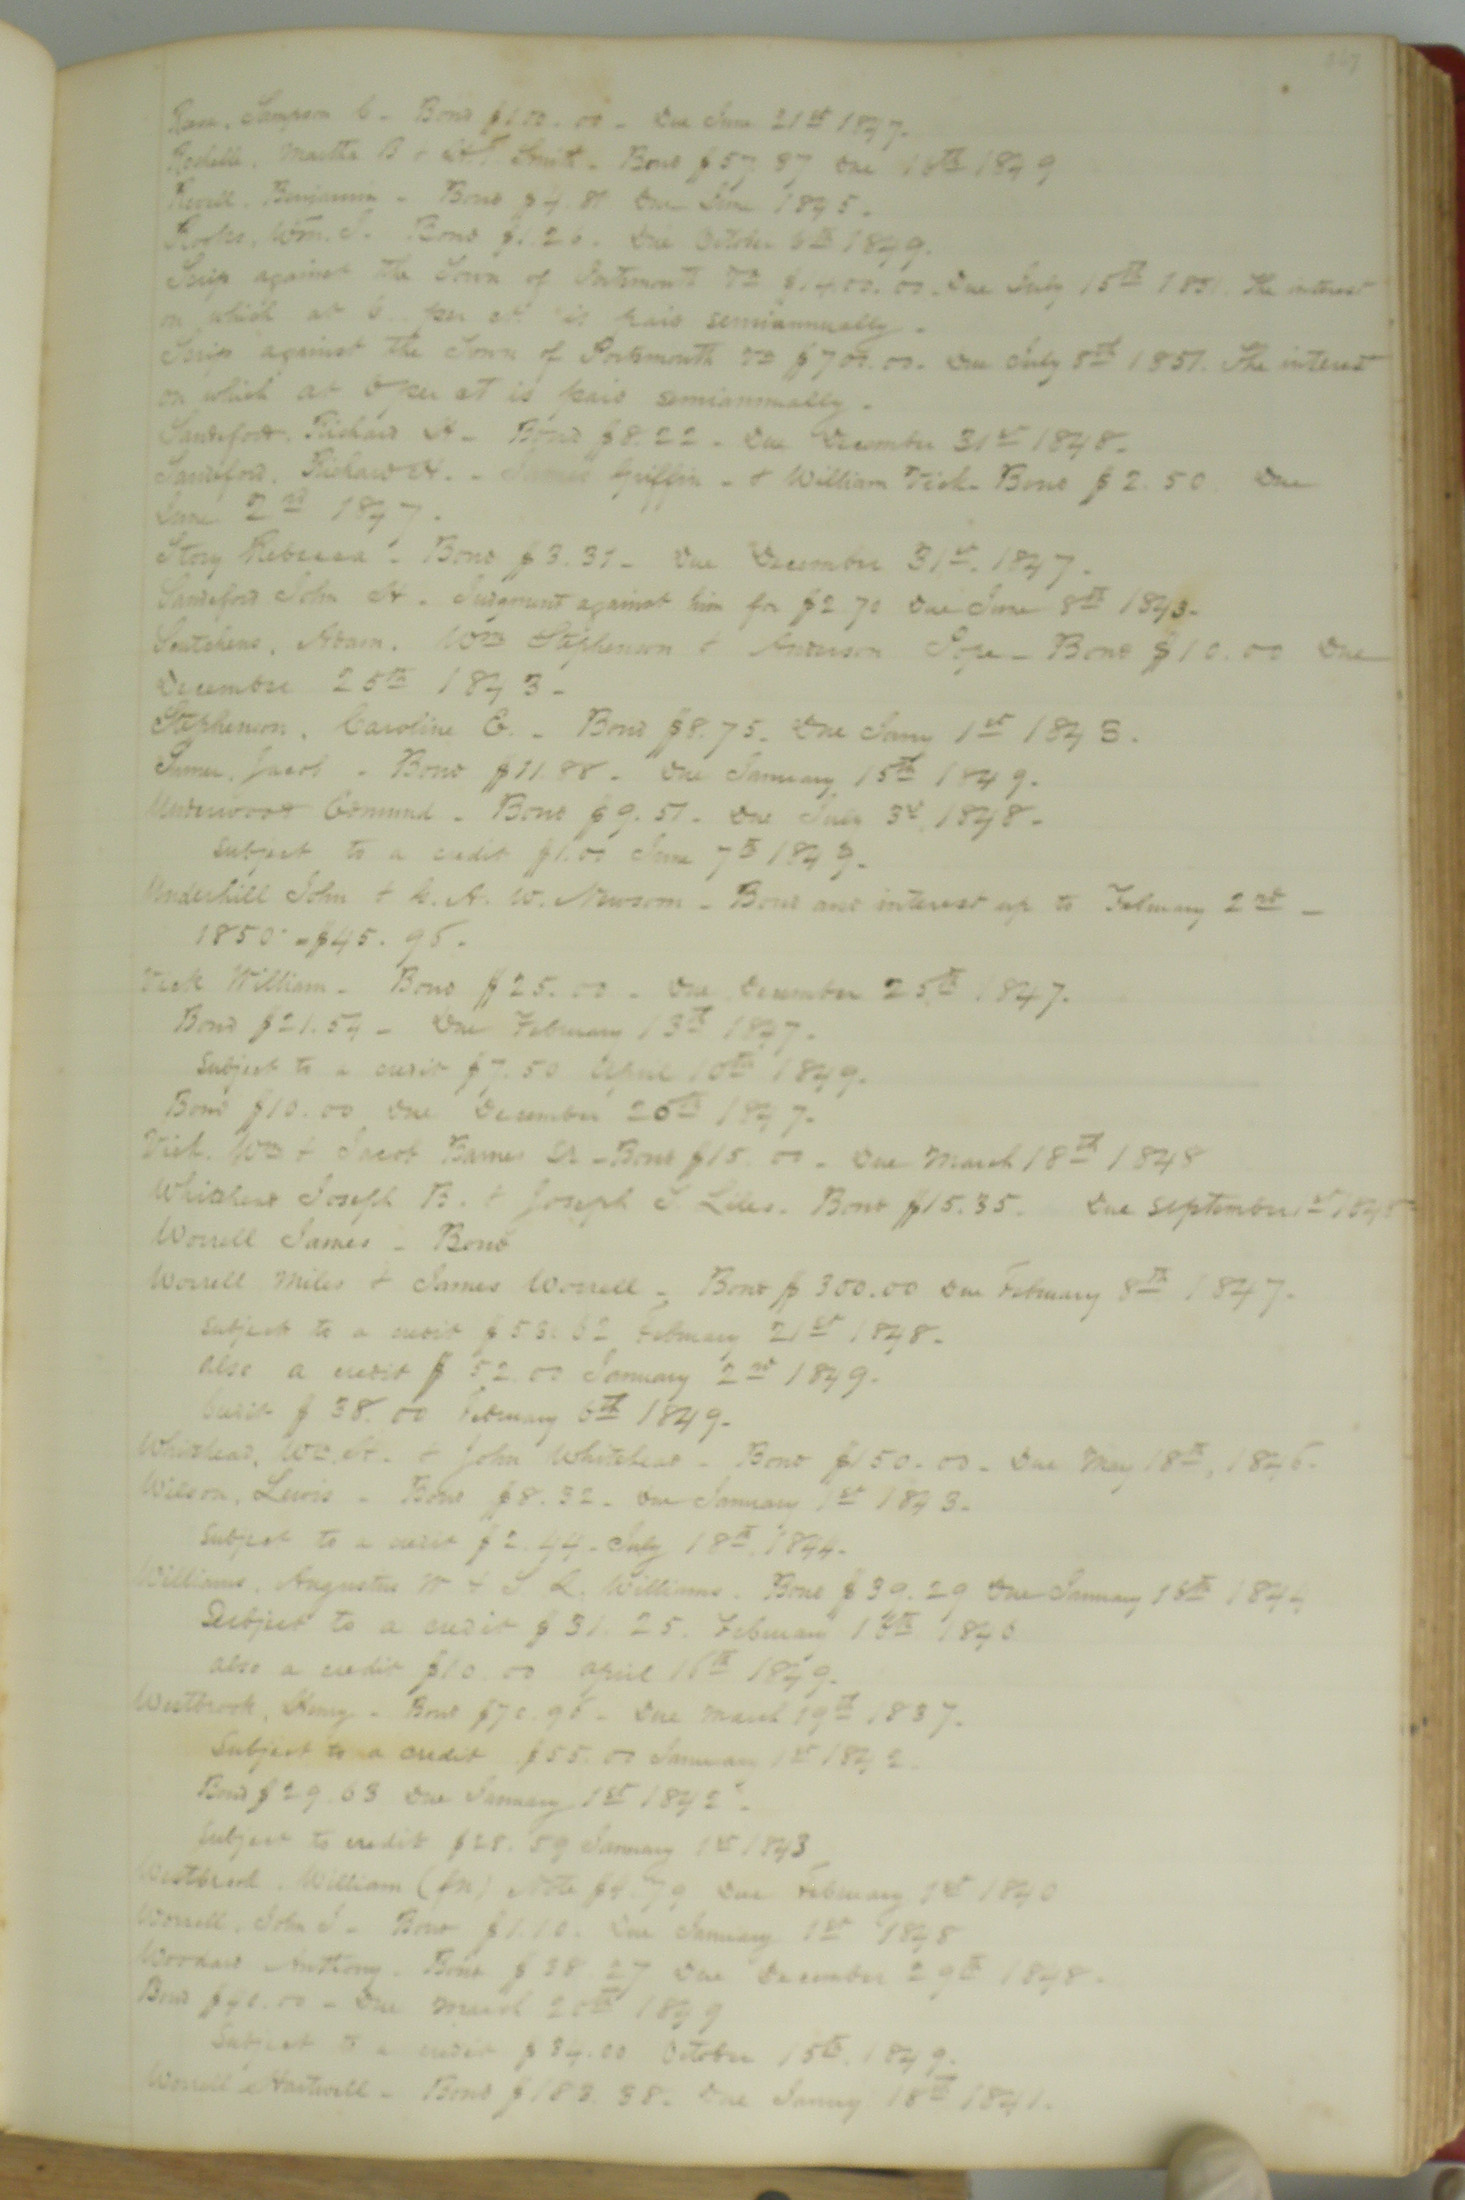 Sampson C - Bond $100.00 - Due June 21st 1847.
Martha B & Smith - Bond $57.87 Due 16th 1849
Benjamin - Bond $4.81 Due June 1845.
Wm. J. Bond $1.26. Due October 6th 1849.
Scrip against the Town of Portsmouth Va $1400.00. Due July 15th 1851. The interest
on which at 6 per ct is paid semiannually.
Scrip against the Town of Portsmouth Va $700.00. Due July 8th 1851. The interest
on which at 6 per ct is paid semiannually.
Sandeford, Richard H - Bond $8.22 - Due December 31st 1848.
Sandeford, Richard H. - James Griffin - & William Vick - Bond $2.50 Due
June 2nd 1847.
Story Rebecca - Bond $3.31 - Due December 31st. 1847.
Sandeford John H. Judgment against him for $2.70 Due June 8th 1843.
Adam. Wm Stephenson & Anderson Pope - Bond $10.00 Due
December 25th 1843 -
Stephenson, Caroline E. - Bond $8.75. Due Jany 1st 1843.
Jacob - Bond $11.88 - Due January 15th 1849.
Underwood Edmund - Bond $9.51. Due July 3d 1848 -
Subject to a credit $1.00 June 7th 1849.
Underhill John & A. W. Newsom - Bond and interest up to February 2nd -
1850 - $45.96.
Vick William - Bond $25.00 - Due December 25th 1847.
Bond $21.54 - Due February 13th 1847.
Subject to a credit $7.50 April 10th 1849.
Bond $10.00 Due December 26th 1847.
Vick. Wm & Jacob Barnes - Bond $15.00 - Due March 18th 1848
Whitehead Joseph B. & Joseph S. Liles. Bond $15.35. Due September 1st
Worrell James - Bond
Worrell Miles & James Worrell - Bond $300.00 Due February 8th 1847.
Subject to a credit February 21st 1848.
also a credit $52.00 January 2nd 1849.
Credit $38.00 February 6th 1849.
Whitehead, Wm. H. & John Whitehead - Bond $150.00 - Due May 18th, 1846.
Wilson, Lewis - Bond $8.32 - Due January 1st 1843.
Subject to a credit $2.44 - July 18th. 1844.
Williams, Augustus W & L. Williams. Bond $39.29 Due January 16th 1844
Subject to a credit $31.25. February 1846
also a credit $10.00 April 16th 1849.
Westbrook, Henry - Bond $70.96 - Due March 19th 1837.
Subject to a credit $55.00 January 1st 1842.
Bond $29.63 Due January 1st 1842.
Subject to credit $28.59 January 1st 1843
William Note Due February 1st 1840
Worrell, John J - Bond $1.10. Due January 1st 1848
Woodard Anthony. Bond $38.27 Due December 29th 1848.
Bond $40.00 - Due March 20th 1849
Subject to a credit $34.00 October 15th. 1849.
Worrell Hartwell - Bond $183.38. Due Janry 18th 1841.